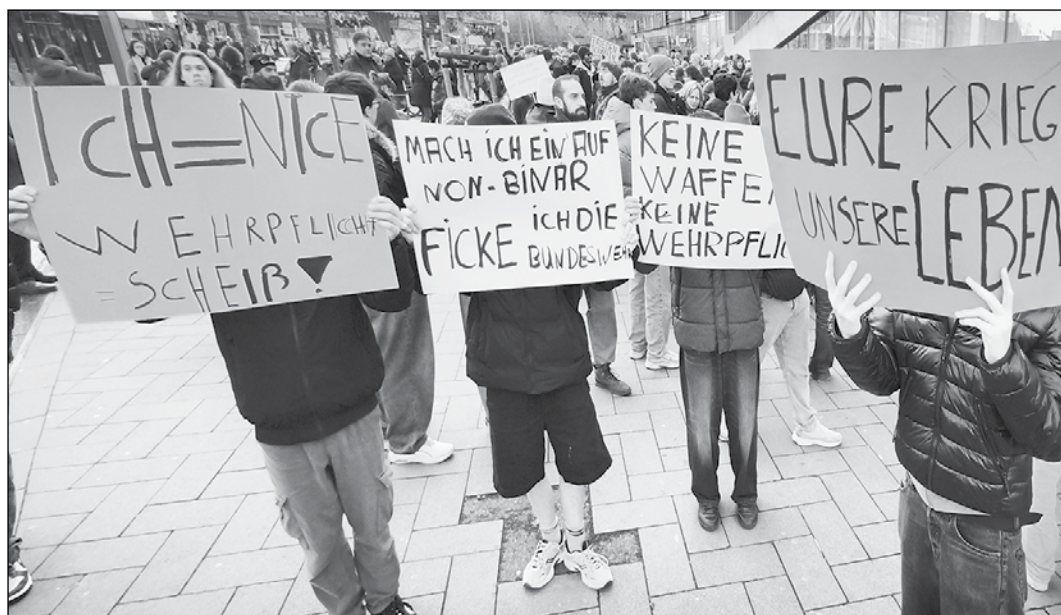 ICH=NICE
WEHRPFLICHT
=SCHEIß!
MACH ICH EIN AUF
NON-BINAR
FICKE ICH DIE
BUNDESWEH
KEINE
WAFFEN
KEINE
WEHRPFLIC
EURE KRIEG
UNSERE LEBEN